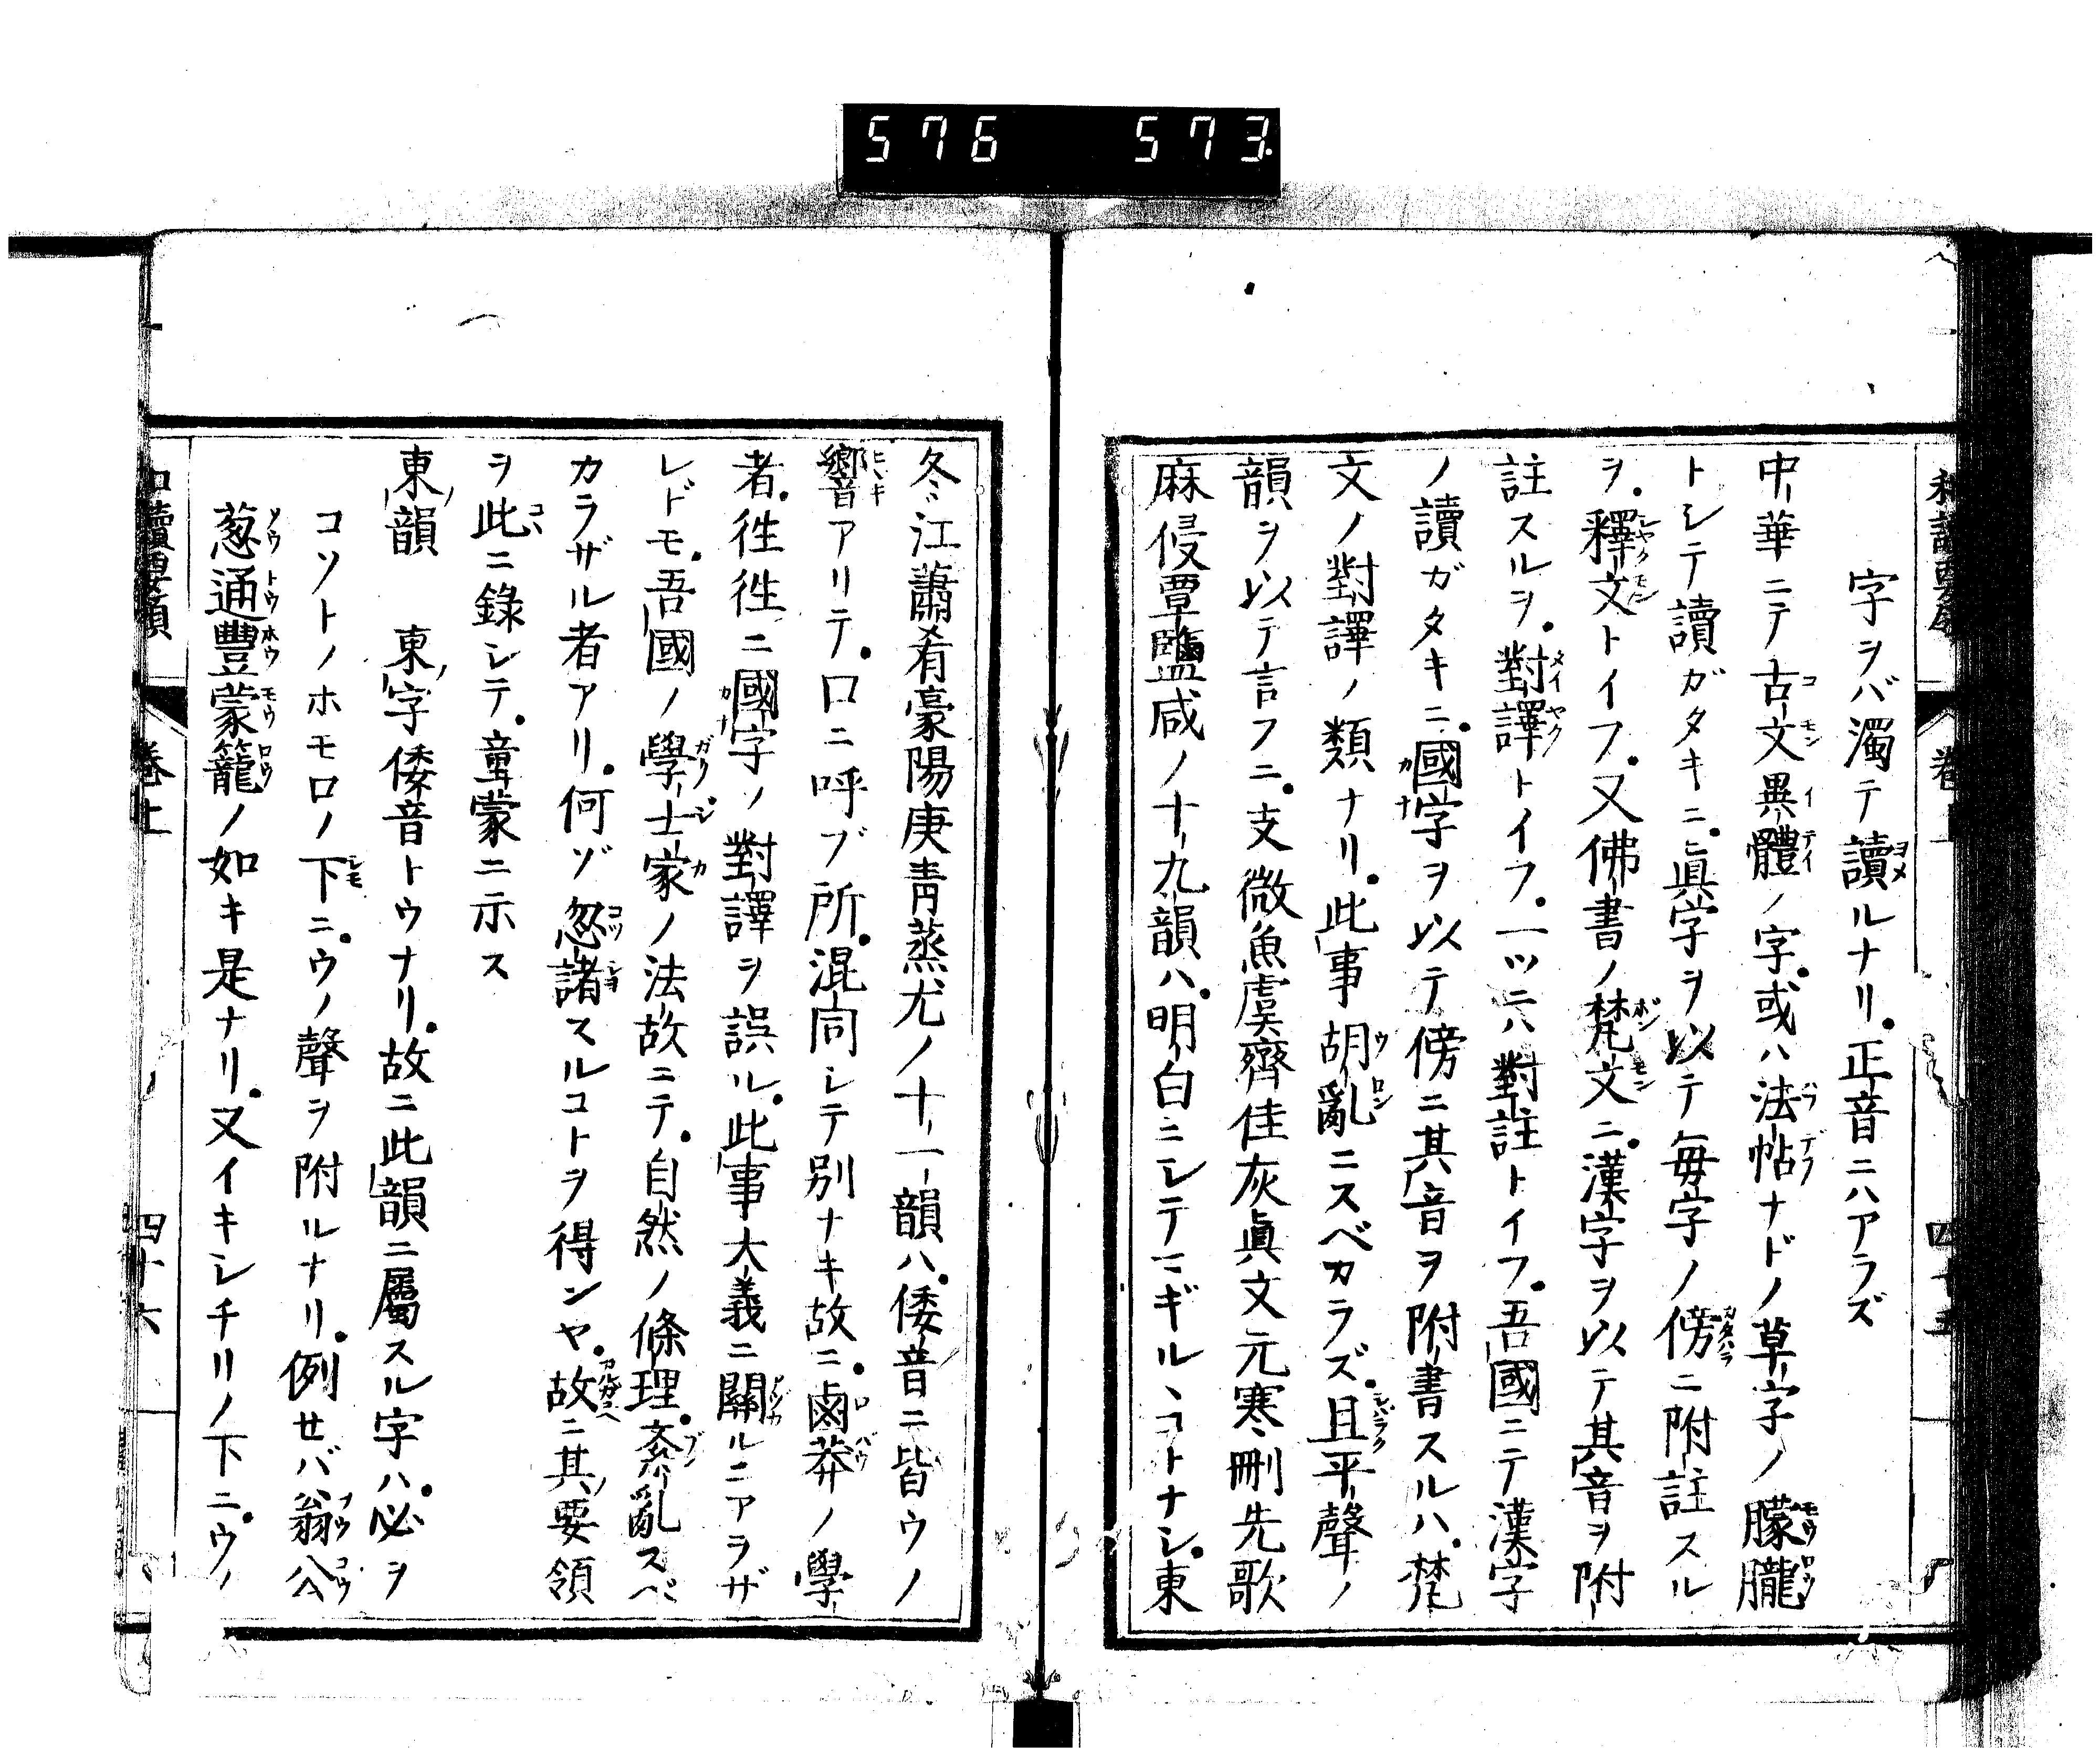 576 573
字ヲバ濁テ讀ルナリ。正音ニハアラズ
中華ニテ古文異體ノ字。或ハ法帖ナドノ草字ノ朦朧
トシテ讀ガタキニ。眞字ヲ以テ毎字ノ傍ニ附註スル
ヲ。釋文トイフ。又佛書ノ梵文ニ。漢字ヲ以テ其音ヲ附
註スルヲ。對譯トイフ。一ツニハ對註トイフ。吾國ニテ漢字
ノ讀ガタキニ。國字ヲ以テ傍ニ其音ヲ附書スルハ。梵
文ノ對譯ノ類ナリ。此事胡亂ニスベカラズ。且平聲ノ
韻ヲ以テ言フニ。支微魚虞齊佳灰眞文元寒刪先歌
麻侵覃鹽咸ノ十九韻ハ。明白ニシテマギルヽコトナシ。東
冬江蕭肴豪陽庚靑蒸尤ノ十一韻ハ。倭音ニ皆ウノ
響アリテ。口ニ呼ブ所。混同シテ別ナキ故ニ。鹵莽ノ學
者。徃徃ニ國字ノ對譯ヲ誤ル。此事大義ニ關ルニアラザ
レドモ。吾國ノ學士家ノ法故ニテ。自然ノ條理。紊亂スベ
カラザル者アリ。何ゾ忽諸スルコトヲ得ンヤ。故ニ其要領
ヲ此ニ錄シテ。童蒙ニ示ス
東韻 東字倭音トウナリ。故ニ此韻ニ屬スル字ハ。必ヲ
コソトノホモロノ下ニ。ウノ聲ヲ附ルナリ。例セバ翁公
葱通豐蒙籠ノ如キ是ナリ。又イキシチリノ下ニ。ウノ
和讀要領 卷上 四十六